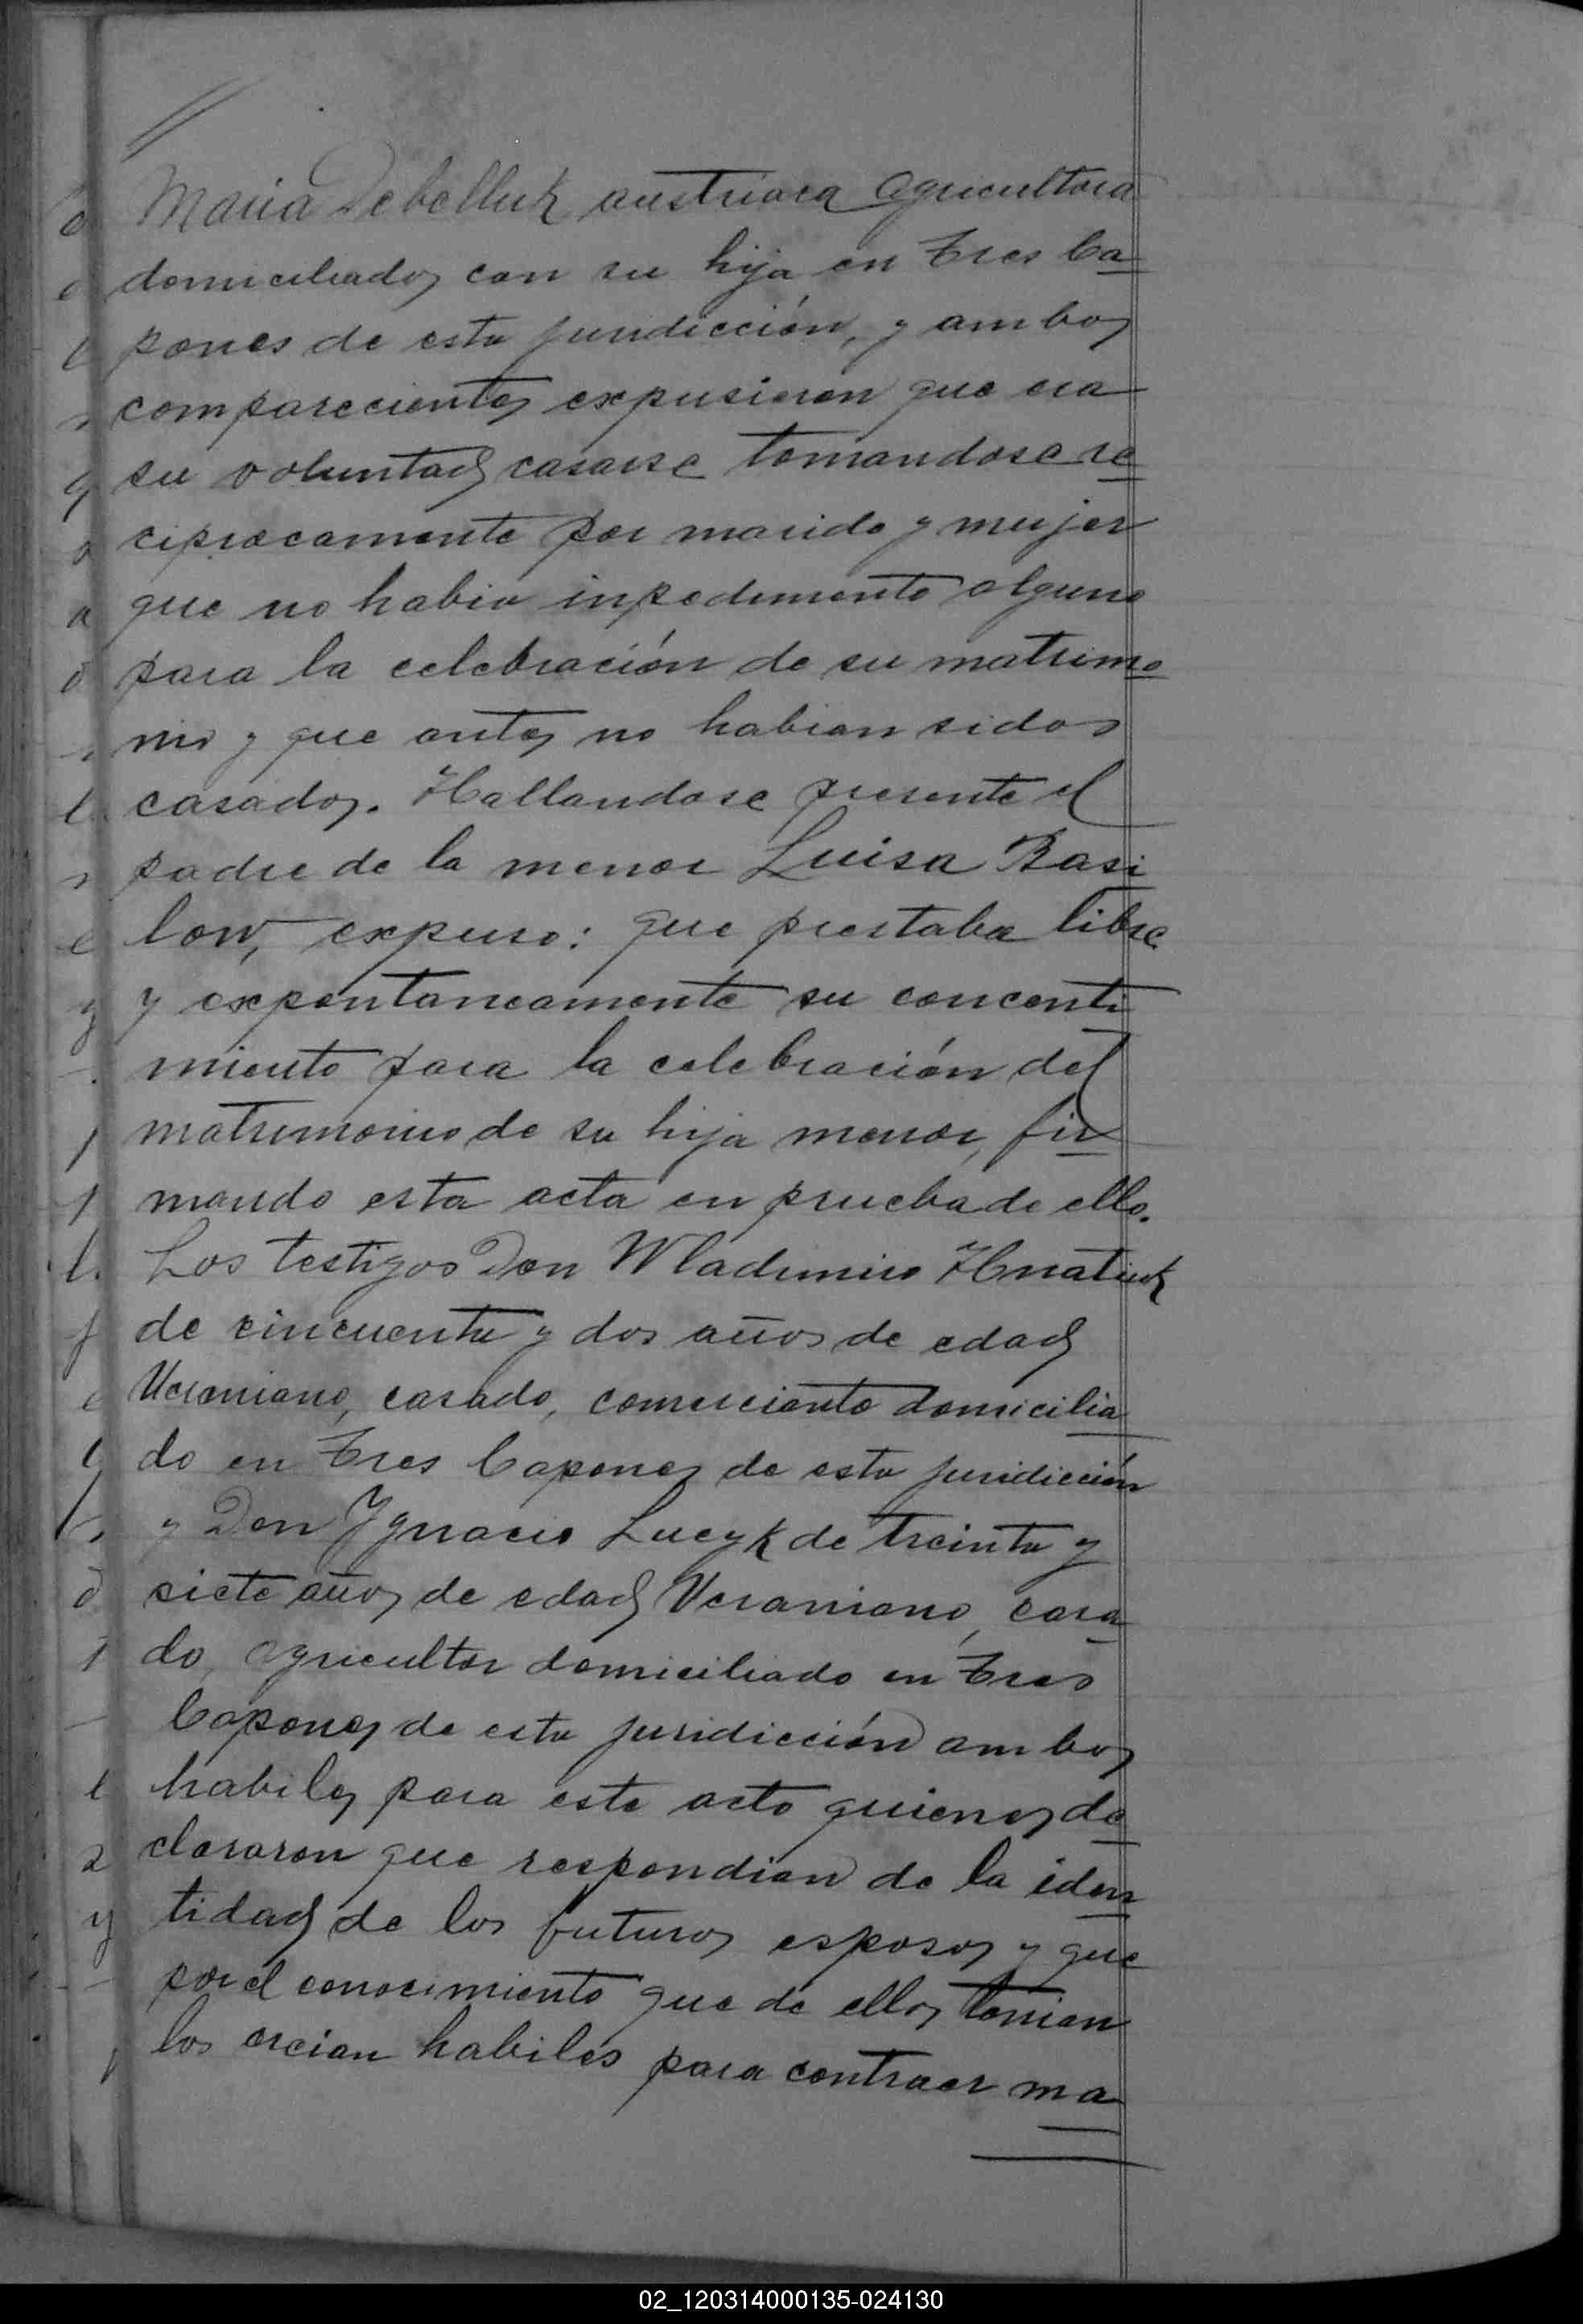 Maria Debelluk austriaca agricultora
domiciliados con su hija en Tres Ca
pones de esta juridicción, y ambos
comparecientes expusieron que era
su voluntad casarse tomandose re
ciprocamente por marido y mujer
que no habia inpedimento alguno
para la celebración de su matrimo
nio y que antes no habian sidos
casados. Hallandose presente el
padre de la menor Luisa Basi
low, expuso: que prestaba libre
y expontaneamente su concenti
miento para la celebración del
matrimonio de su hija menor, fir
mando esta acta en prueba de ello.
Los testigos Don Wladimiro Hnatiuk
de cincuenta y dos años de edad
Ucraniano, casado, comerciante domicilia
do en Tres Capones de esta juridicción
y Don Ygnacio Lucyk de treinta y
siete años de edad Ucraniano, casa
do, agricultor domiciliado en Tres
Capones de esta juridicción ambos
habiles para este acto quienes de
clararon que respondian de la iden
tidad de los futuros esposos y que
por el conocimiento que de ellos tenian
los creian habiles para contraer ma
02_120314000135-024130